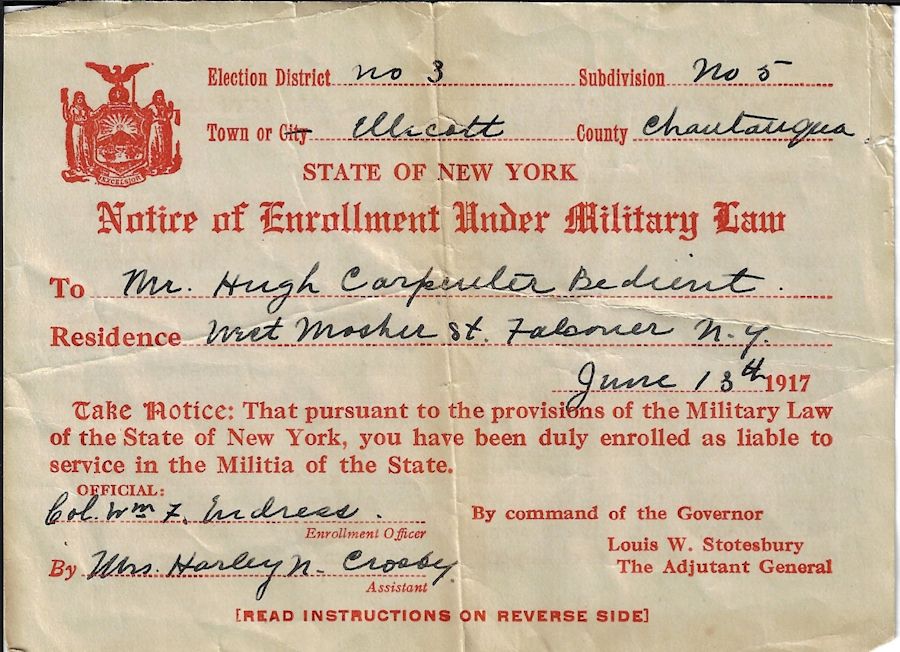 Election District no 3 Subdivision No 5
Town or City Ellicott County Chautauqua
EXCELSIOR
STATE OF NEW YORK
Notice of Enrollment Under Military Law
To Mr. Hugh Carpenter Bedient.
Residence West Mosher St. Falconer N.Y.
June 13th 1917
Take Notice: That pursuant to the provisions of the Military Law
of the State of New York, you have been duly enrolled as liable to
service in the Militia of the State.
OFFICIAL:
Col. Wm F. Endress.
Enrollment Officer
By command of the Governor
Louis W. Stotesbury
The Adjutant General
By Mrs. Harley N. Crosby
Assistant
[READ INSTRUCTIONS ON REVERSE SIDE]